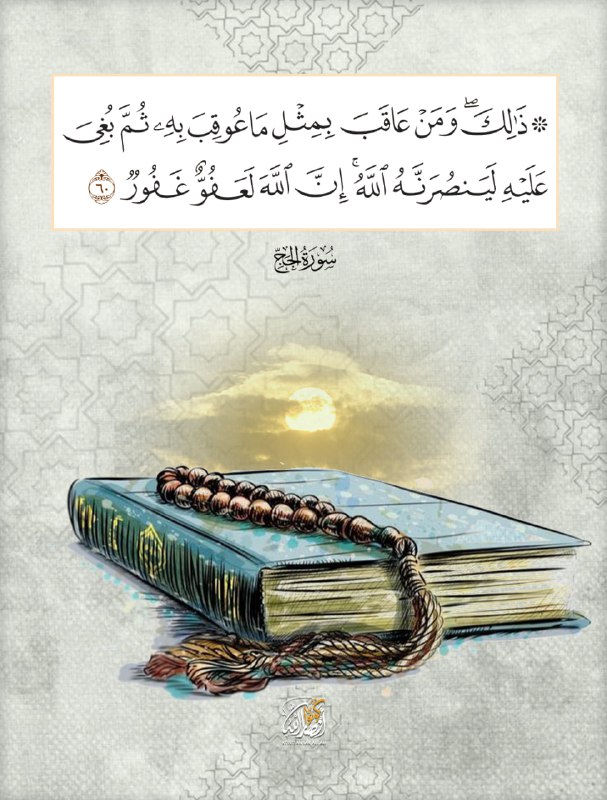 ۞ ذَٰلِكَۖ وَمَنْ عَاقَبَ بِمِثْلِ مَا عُوقِبَ بِهِۦ ثُمَّ بُغِيَ
عَلَيْهِ لَيَنصُرَنَّهُ ٱللَّهُۚ إِنَّ ٱللَّهَ لَعَفُوٌّ غَفُورٌ ٦٠
سُورَةُ الحَجِّ